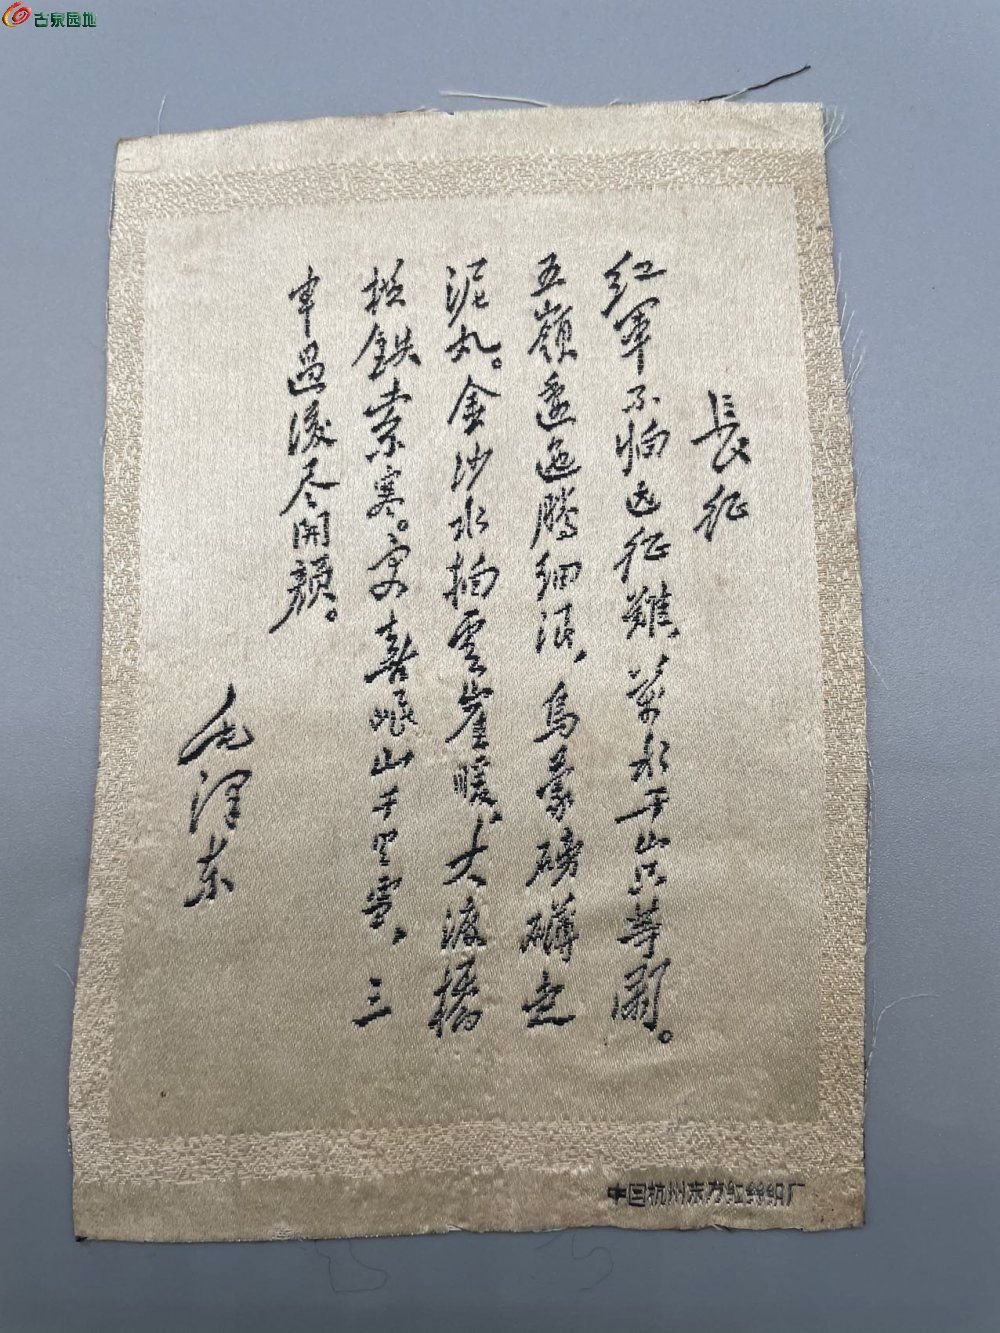 古泉园地
長征
红軍不怕远征難，萬水千山只等闲。
五嶺逶迤腾细浪，烏蒙磅礴走
泥丸。金沙水拍雲崖暖，大渡橋
横鉄索寒。更喜岷山千里雪，三
軍過後尽開顔。
毛泽东
中国杭州东方红丝织厂